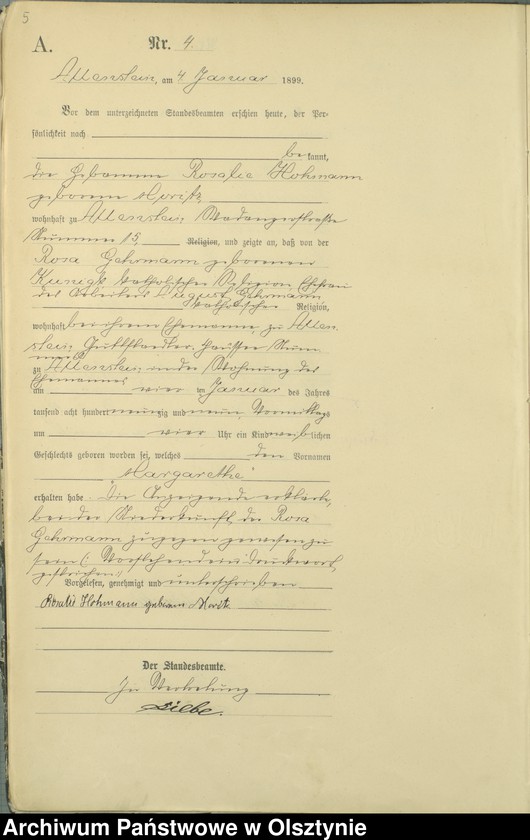 5
A.
Nr. 4
Allenstein, am 4 Januar 1899.
Vor dem unterzeichneten Standesbeamten erschien heute, der Per-
sönlichkeit nach
bekannt,
die Hebamme Rosalie Hohmann
geborene Moritz,
wohnhaft zu Allenstein, Wadangerstraße
Nummer 15, Religion, und zeigte an, daß von der
Rosa Gehrmann geborenen
katholischer Religion Ehefrau
des Arbeiters August Gehrmann
katholischer Religion,
wohnhaft bei ihrem Ehemanne zu Allen-
stein, Gutstädter Num-
mer
zu Allenstein, in der Wohnung des
Ehemannes
am vier ten Januar des Jahres
tausend acht hundert neunzig und neun, Vormittags
um vier Uhr ein Kind weiblichen
Geschlechts geboren worden sei, welches den Vornamen
"Margarethe"
erhalten habe. Die Anzeigende erklärte,
bei der Niederkunft der Rosa
Gehrmann zugegen gewesen zu
sein (: Vorstehend ein Druckwort
gestrichen :)
Vorgelesen, genehmigt und unterschrieben
Rosalie Hohmann geborene Moritz
Der Standesbeamte.
In Vertretung
Archiwum Państwowe w Olsztynie